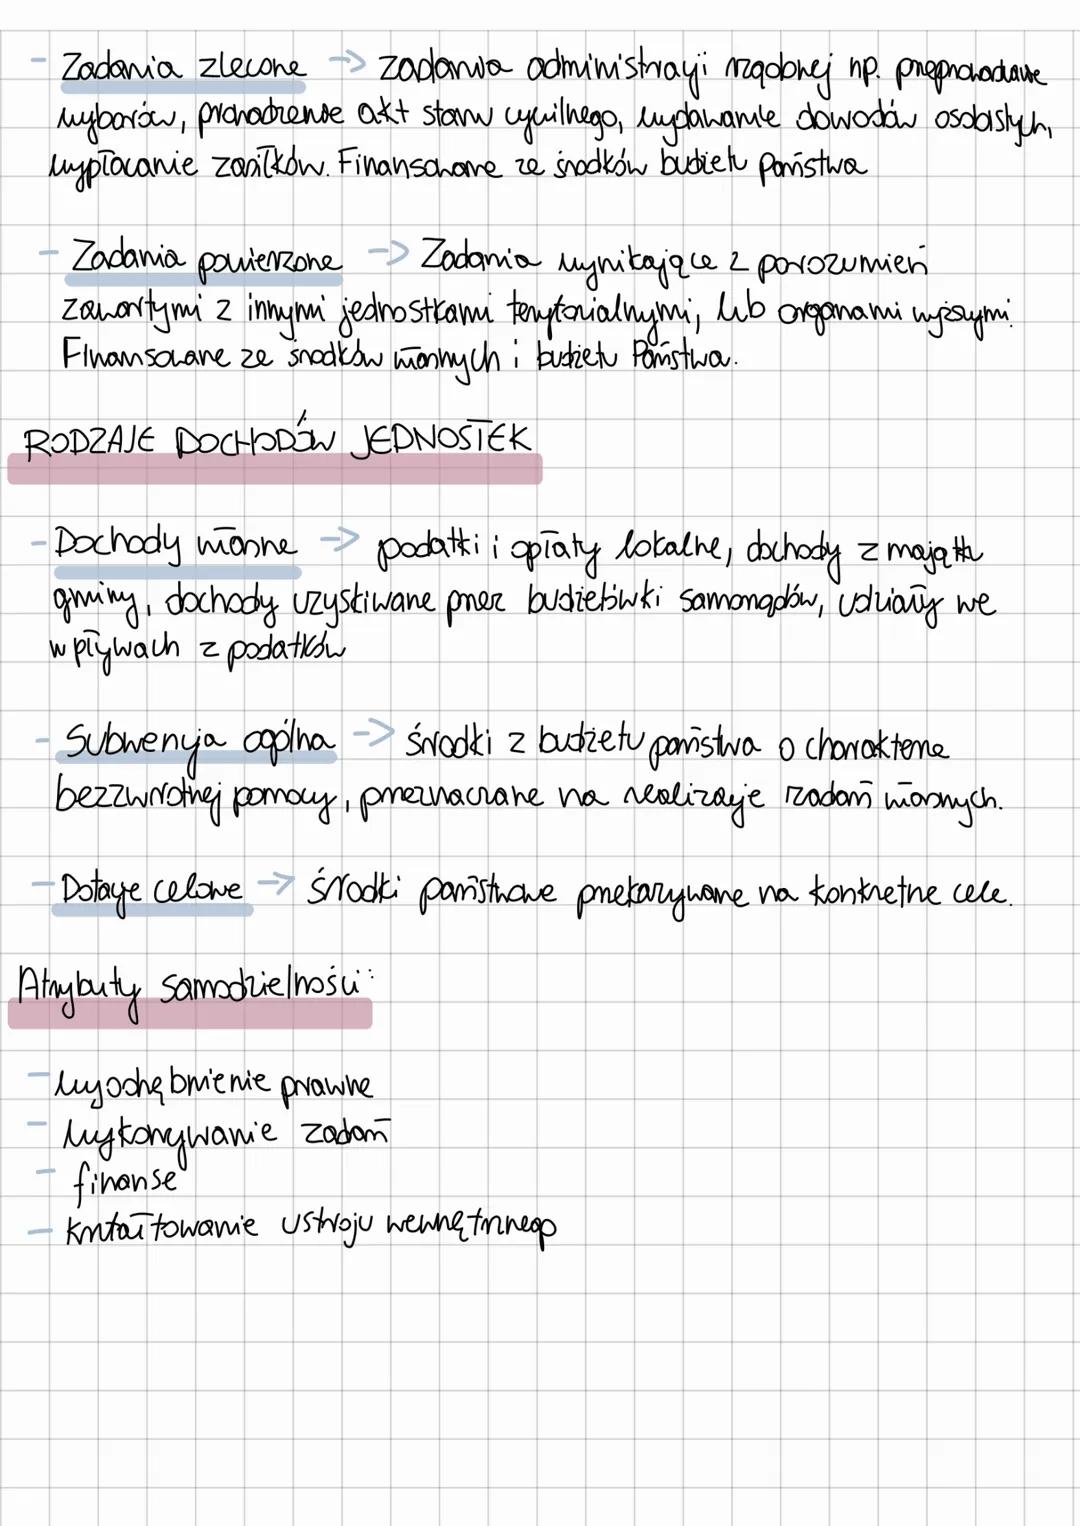 - Zadania zlecone -> zadania administracji rządowej np. przeprowadzanie
wyborów, prowadzenie akt stanu cywilnego, wydawanie dowodów osobistych,
wypłacanie zasiłków. Finansowane ze środków budżetu Państwa
- Zadania powierzone -> Zadania wynikające z porozumień
zawartymi z innymi jednostkami terytorialnymi, lub organami wyższymi.
Finansowane ze środków własnych i budżetu Państwa.
RODZAJE DOCHODÓW JEDNOSTEK
- Dochody własne -> podatki i opłaty lokalne, dochody z majątku
gminy, dochody uzyskiwane przez budżetówki samorządów, udziały we
wpływach z podatków
- Subwencja ogólna -> środki z budżetu państwa o charakterze
bezzwrotnej pomocy, przeznaczane na realizację zadań własnych.
- Dotacje celowe -> środki państwowe przekazywane na konkretne cele.
Atrybuty samodzielności:
- wyodrębnienie prawne
- wykonywanie zadań
- finanse
- kształtowanie ustroju wewnętrznego